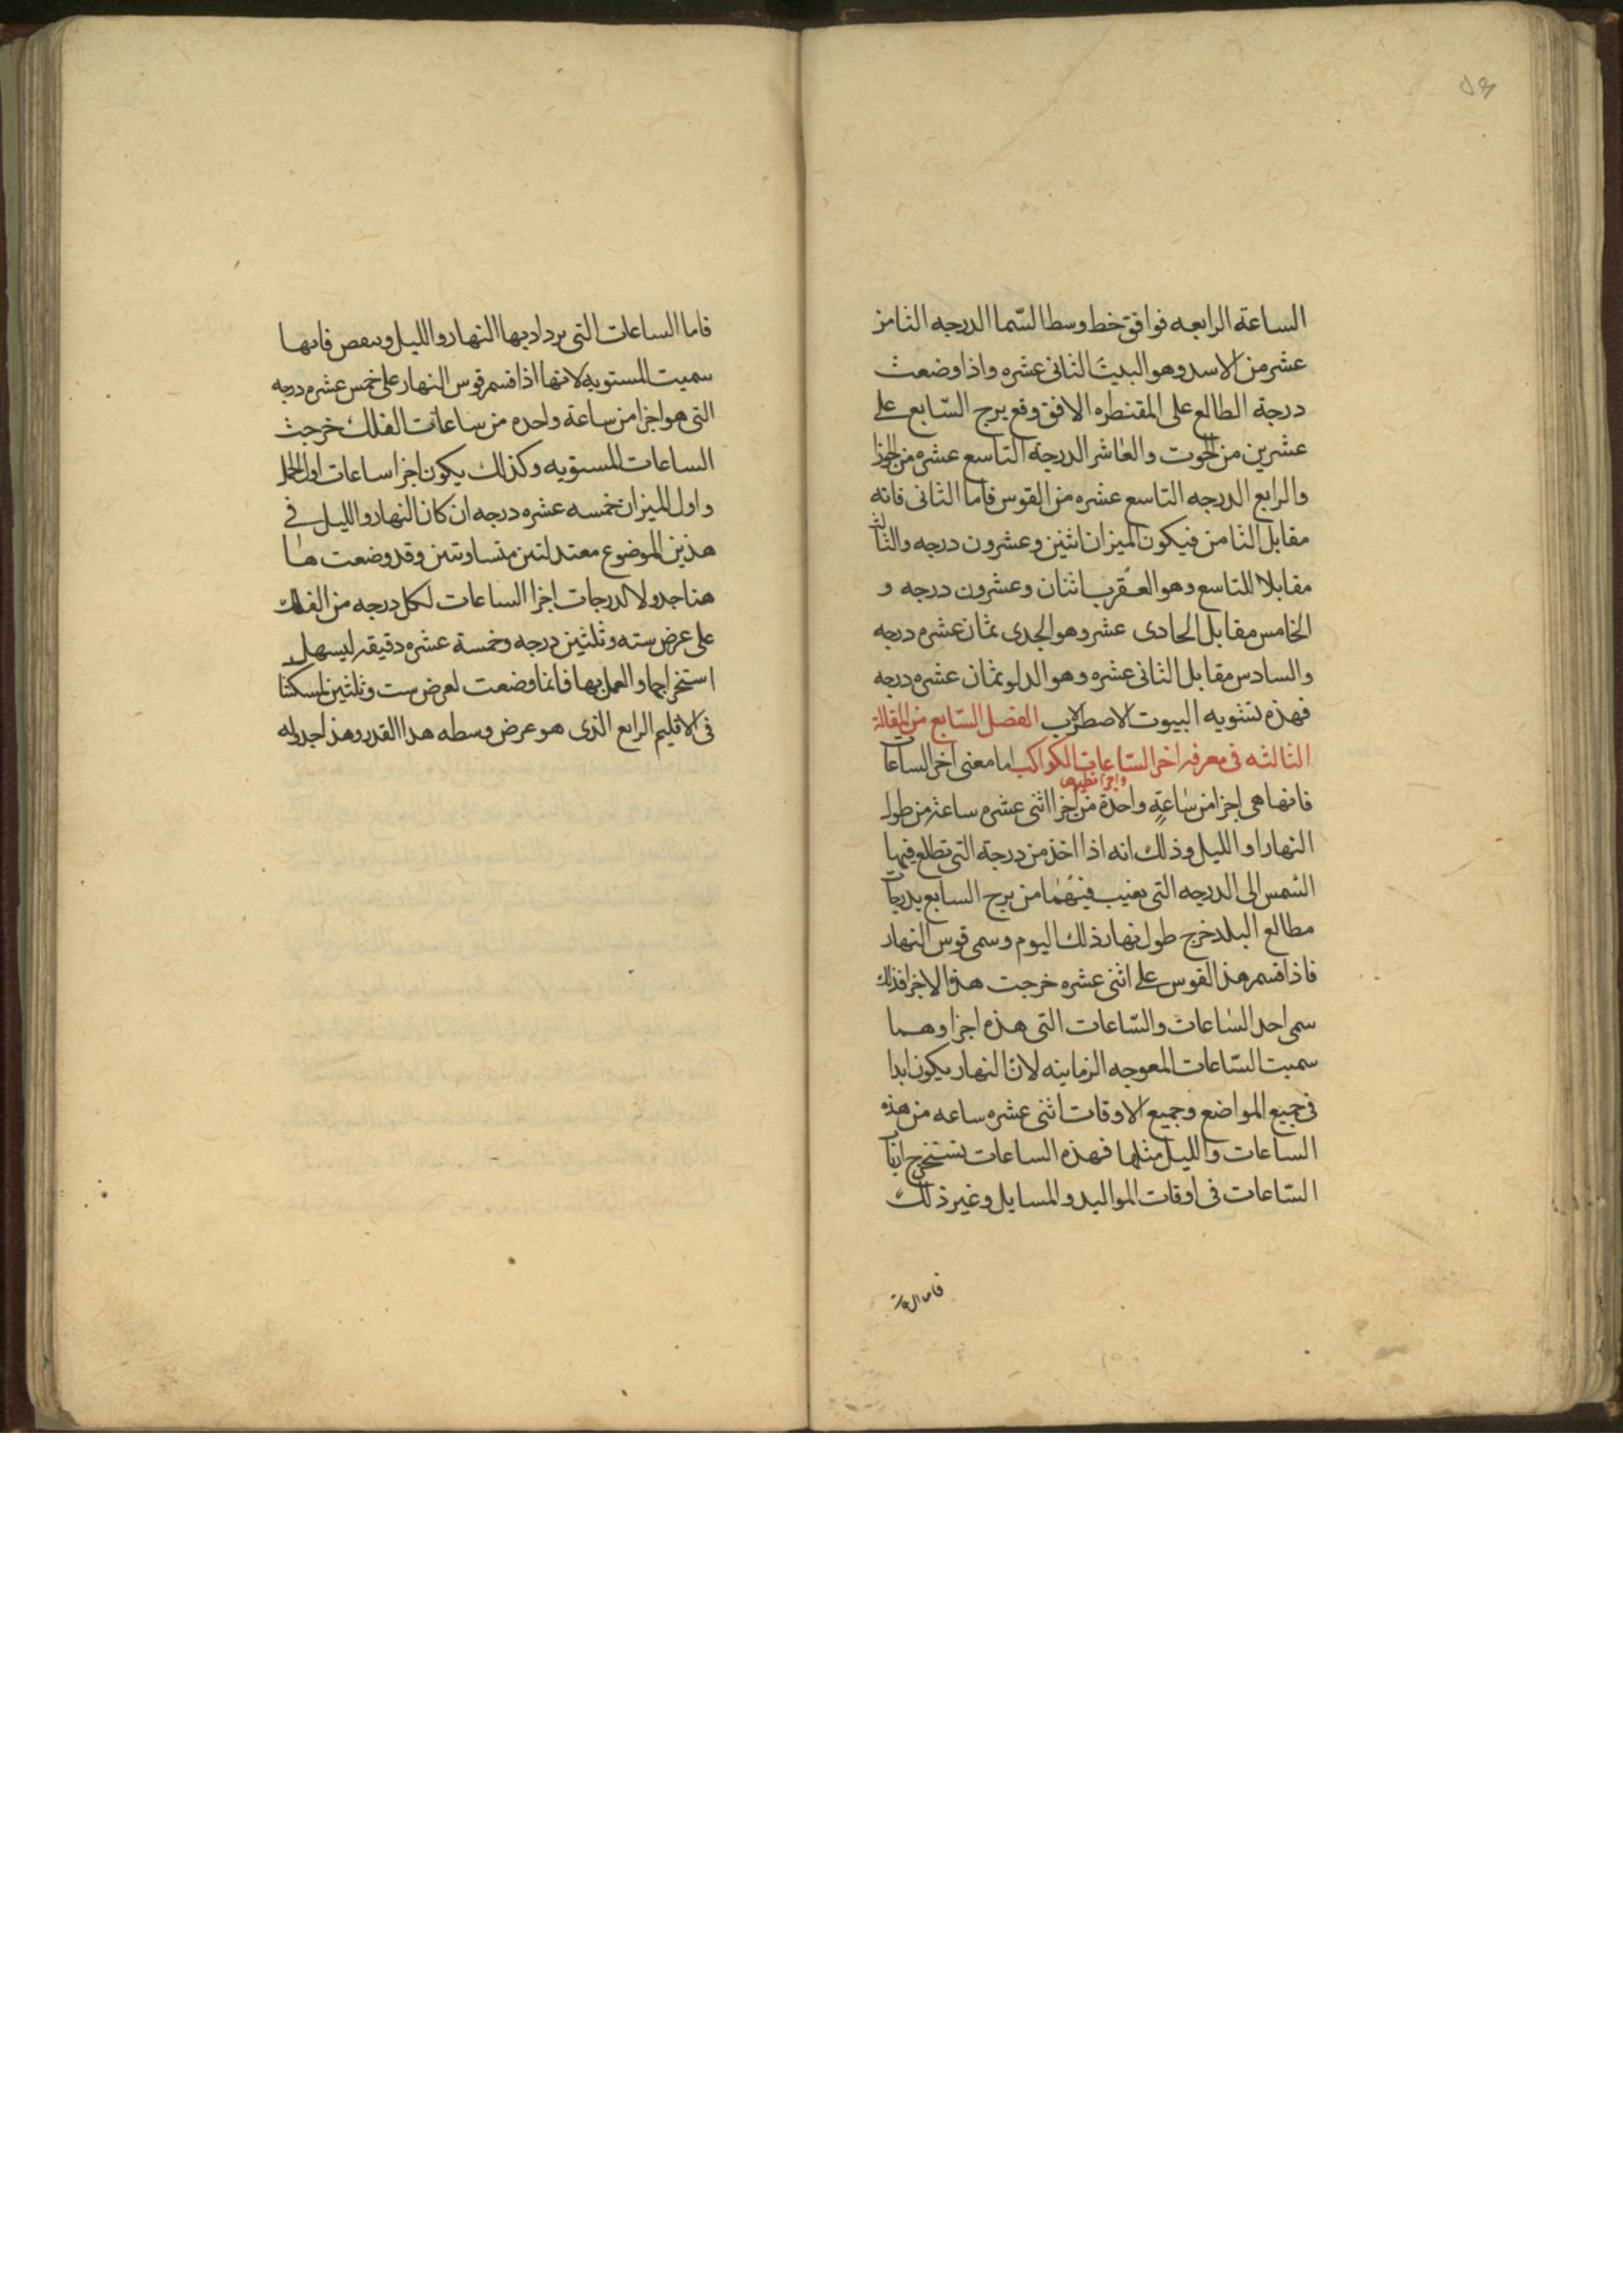 ٥٣
الساعة الرابعه فوافق خط وسط السّما الدرجه الثامن
عشر من الاسد وهو البيت الثانى عشره واذا وضعت
درجة الطالع على المقنطره الافق وقع برج السّابع على
عشرين من الحوت والعاشر الدرجة التاسع عشره من الجوزا
والرابع الدرجه التاسع عشره من القوس فاما الثانى فانه
مقابل الثامن فيكون الميزان اثنين وعشرون درجه والثالث
مقابلا للتاسع وهو العقرب اثنان وعشرون درجه و
الخامس مقابل الحادى عشر وهو الجدى ثمان عشره درجه
والسادس مقابل الثانى عشره وهو الدلو ثمان عشره درجه
فهذه تسويه البيوت الاصطرلاب الفصل السّابع من المقالة
الثالثه فى معرفه اجزا السّاعات الكواكب اما معنى اجزا الساعات
واجزا نظيرها
فانها هى اجزا من ساعةٍ واحدة من اجزا اثنى عشره ساعة من طول
النهار او الليل وذلك انه اذا اخذ من درجة التى تطلع فيها
الشمس الى الدرجه التى يغيب فيهما من برج السابع بدرجات
مطالع البلد خرج طول نهار ذلك اليوم وسمى قوس النهار
فاذا قسم هذا القوس على اثنى عشره خرجت هذا الاجزا فذلك
سمى احد الساعات والسّاعات التى هذه اجزاوهما
سميت السّاعات المعوجه الزمانيه لانّ النهار يكون ابدا
فى جميع المواضع وجميع الاوقات اثنى عشره ساعه من هذه
الساعات والليل مثلها فهذه الساعات تستخرج اربا‌ب
السّاعات فى اوقات المواليد والمسايل وغير ذلك
فاما الساعات
فاما الساعات التى يزداد بها النهار والليل وينقص فانها
سميت المستويه لانها اذا قسم قوس النهار على خمس عشره درجه
التى هو اجزا من ساعة واحده من ساعات الفلك خرجت
الساعات المستويه وكذلك يكون اجزا ساعات اول الحمل
واول الميزان خمسه عشره درجه ان كان النهار والليل فى
هذين الموضوع معتدلتين متساوتين وقد وضعت ها
هنا جدولا لدرجات اجزا الساعات لكل درجه من الفلك
على عرض سته وثلثين درجه وخمسة عشره دقيقه ليسهل
استخراجها والعمل بها فانما وضعت لعرض ست وثلثين لمسكننا
فى الاقليم الرابع الذى هو عرض وسطه هذا القدر وهذا جدوله